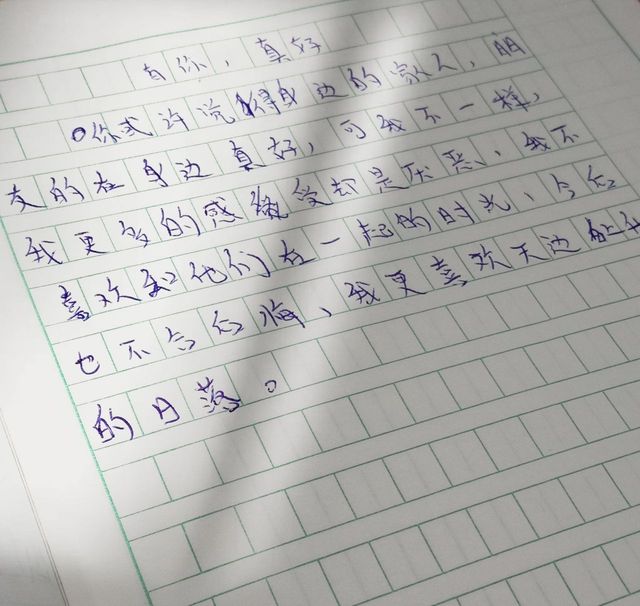 有你，真好
你或许觉得身边的家人，朋
友的在身边真好，可我不一样，
我更多的感受却是厌恶，我不
喜欢和他们在一起的时光、今后
也不会后悔、我更喜欢天边
的日落。